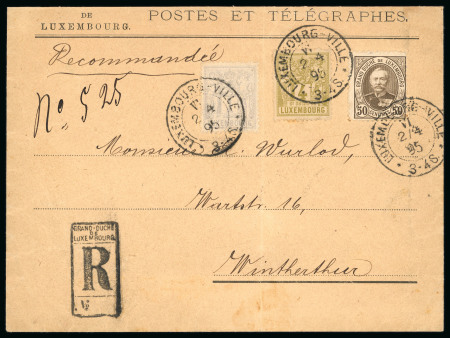 DE
LUXEMBOURG.
POSTES ET TÉLÉGRAPHES.
Recommandée
No. 525
LUXEMBOURG-VILLE
2 4
95
3-4S.
LUXEMBOURG-VILLE
2 4
95
3-4S.
LUXEMBOURG
GRAND-DUCHÉ DE LUXEMBOURG
50 50
LUXEMBOURG-VILLE
2 4
95
3-4S.
Monsieur M. Wurlod,
Wartstr 16,
Wintherthur
GRAND-DUCHÉ
DE
LUXEMBOURG
R